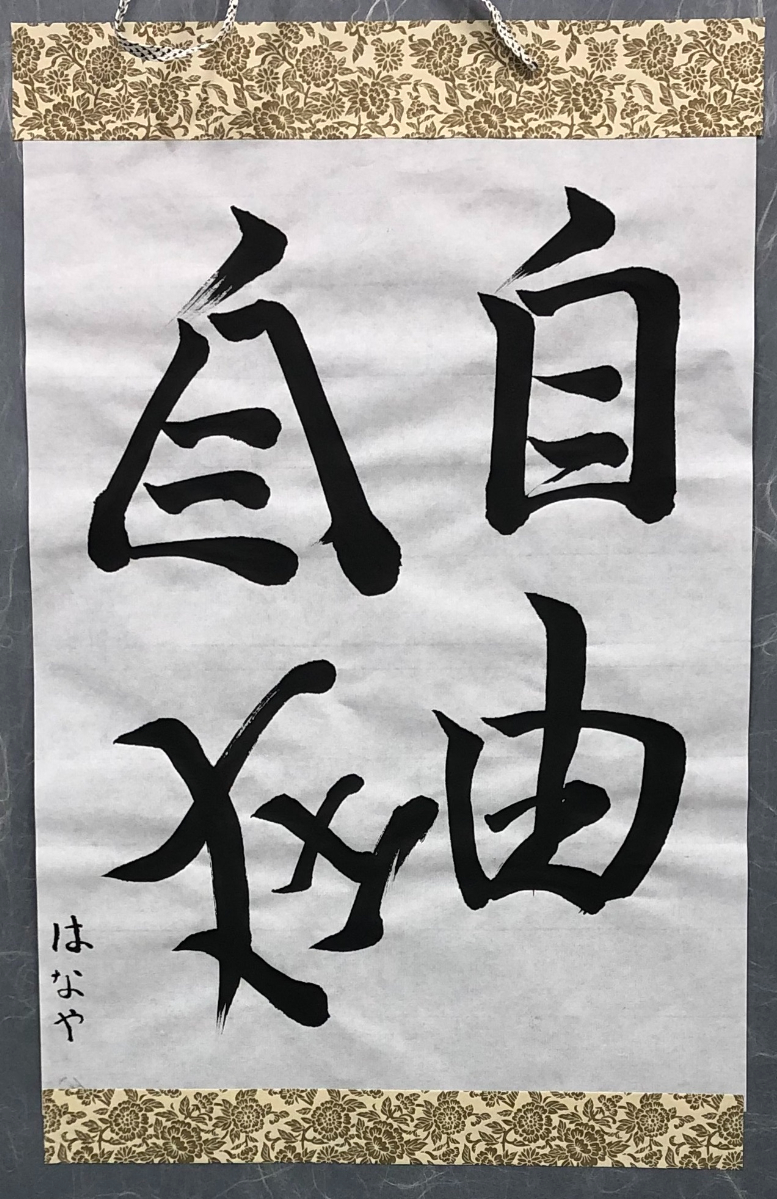 自由
自
はなや